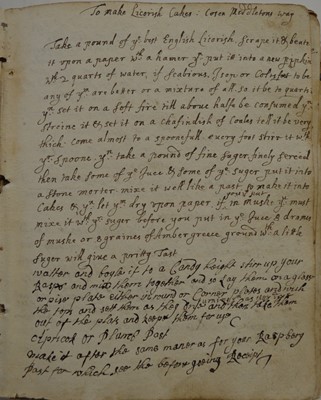 To make Licorish Cakes: Coson Meddletons way
Take a pound of yᵉ best English Licorish. Scrape it & beate
it upon a paper wᵗʰ a hamer yⁿ put it into a new pipkin
wᵗʰ 2 quarts of water, if Scabious, Isop or Colsfoot to be
any of yᵐ are better or a mixture of all 4 so it be to quarts
yⁿ set it on a soft fire till above halfe be consumed yⁿ
Streine it & set it on a chafindish of Coales till it be very
thick: Come almost to a spoonefull every foot stirr it wᵗʰ
yᵉ Spoone. yⁿ take a pound of fine Suger finely serced
then take some of yᵉ Juce & some of yᵉ suger put it into
a stone morter mixe it well like a past so make it into
Cakes & yⁿ let yᵐ dry upon paper if you put in muske yⁿ must
mixe it wᵗʰ yᵉ suger before you put in yᵉ Juce 2 drames
of muske or 2 graines of Amber greece ground wᵗʰ a litle
Suger will give a pretty Tast
watter and boyle it to a Candy height stir up your
Rasps and mix them together and so Lay them on a glass
or pye plate either round or Corner plates and with
the tops and sett them as they drie and then take them
out of the plats and keepe them for use
Apricok or Plumb Past
Make it after the same maner as for your Raspbery
Past for which see the before going Receipt